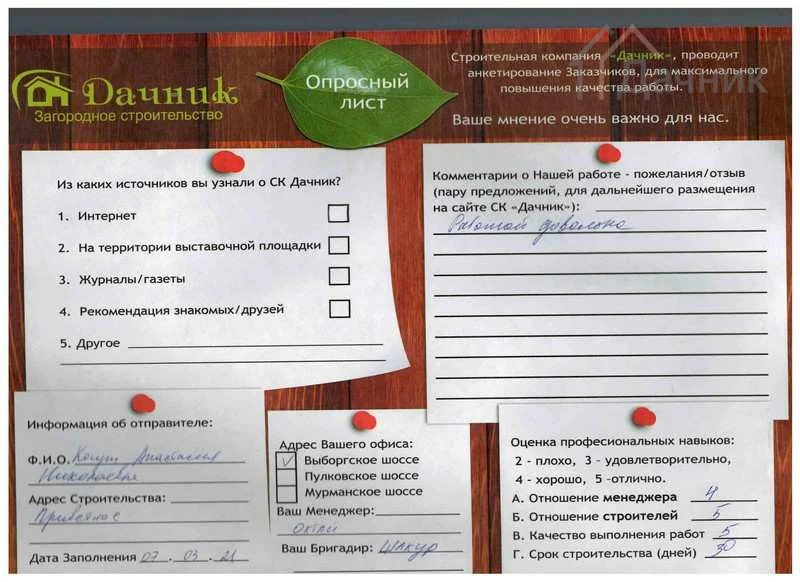 Дачник
Загородное строительство
Опросный
лист
Строительная компания «Дачник», проводит
анкетирование Заказчиков, для максимального
повышения качества работы.
Ваше мнение очень важно для нас.
Дачник
Из каких источников вы узнали о СК Дачник?
1. Интернет
2. На территории выставочной площадки
3. Журналы/газеты
4. Рекомендация знакомых/друзей
5. Другое
Комментарии о Нашей работе - пожелания/отзыв
(пару предложений, для дальнейшего размещения
на сайте СК «Дачник»):
Работой довольна
Информация об отправителе:
Ф.И.О. Анастасия
Николаевна
Адрес Строительства:
Дата Заполнения 07.03.21
Адрес Вашего офиса:
Выборгское шоссе
Пулковское шоссе
Мурманское шоссе
Ваш Менеджер:
Ваш Бригадир: Шакур
Оценка професиональных навыков:
2 - плохо, 3 - удовлетворительно,
4 - хорошо, 5 -отлично.
А. Отношение менеджера 4
Б. Отношение строителей 5
В. Качество выполнения работ 5
Г. Срок строительства (дней) 30